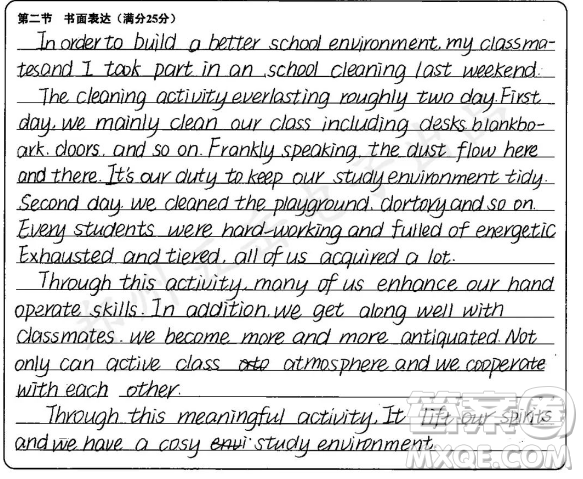 第二节 书面表达（满分25分）
In order to build a better school environment, my classma-
tes and I took part in an school cleaning last weekend.
The cleaning activity everlasting roughly two day. First
day, we mainly clean our class including desks, blankbo-
ark, doors, and so on. Frankly speaking, the dust flow here
and there. It's our duty to keep our study environment tidy.
Second day, we cleaned the playground, dortory and so on.
Every students were hard-working and fulled of energetic
Exhausted and tiered, all of us acquired a lot.
Through this activity, many of us enhance our hand
operate skills. In addition, we get along well with
classmates. we become more and more antiquated. Not
only can active class atmosphere and we cooperate
with each other.
Through this meaningful activity, It lift our spirits
and we have a cosy study environment.